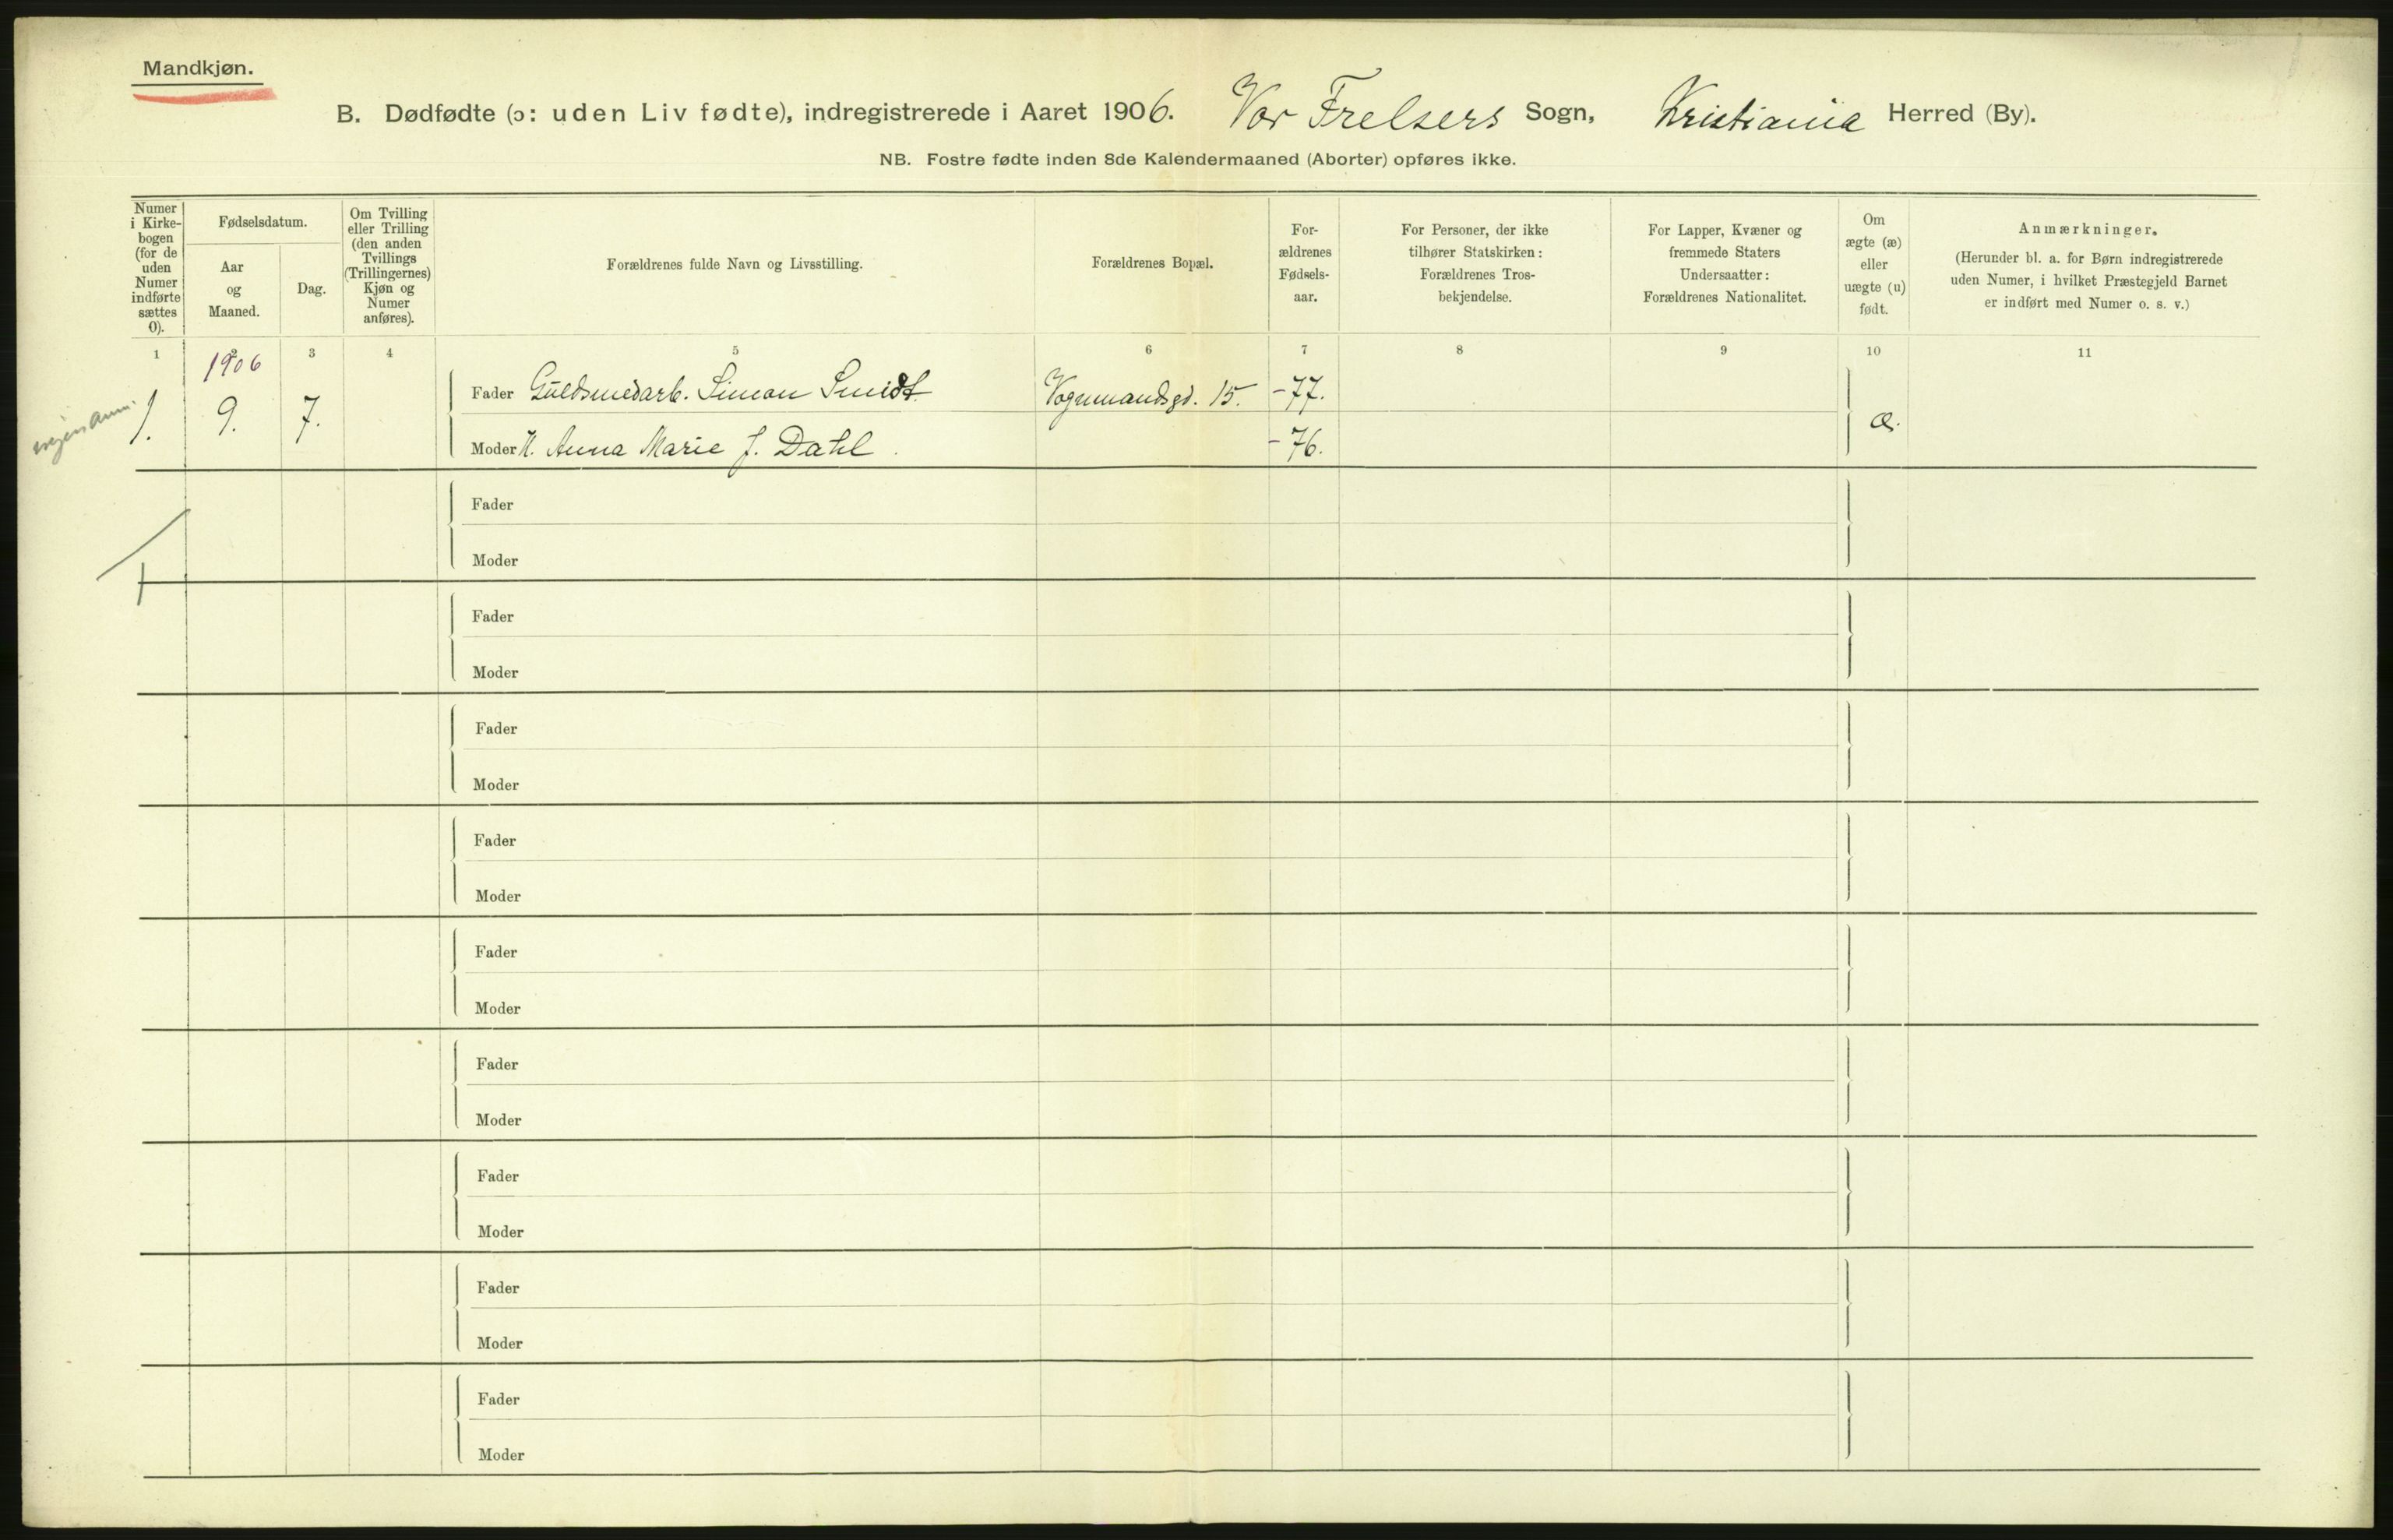 Mandkjøn.
B. Dødfødte (ɔ: uden Liv fødte), indregistrerede i Aaret 1906. Vor Frelsers Sogn, Kristiania Herred (By).
NB. Fostre fødte inden 8de Kalendermaaned (Aborter) opføres ikke.
Numer
i Kirke-
bogen
(for de
uden
Numer
indførte
sættes
0).
Fødselsdatum.
Aar
og
Maaned.
Dag.
Om Tvilling
eller Trilling
(den anden
Tvillings
(Trillingernes)
Kjøn og
Numer
anføres).
Forældrenes fulde Navn og Livsstilling.
Forældrenes Bopæl.
For-
ældrenes
Fødsels-
aar.
For Personer, der ikke
tilhører Statskirken:
Forældrenes Tros-
bekjendelse.
For Lapper, Kvæner og
fremmede Staters
Undersaatter:
Forældrenes Nationalitet.
Om
ægte (æ)
eller
uægte (u)
født.
Anmærkninger.
(Herunder bl. a. for Børn indregistrerede
uden Numer, i hvilket Præstegjeld Barnet
er indført med Numer o. s. v.)
1 2 3 4 5 6 7 8 9 10 11
1906
1. 9. 7. Fader Guldsmedarb. Simon Smidt Vognmandsgd. 15. -77. æ.
Moder H. Anna Marie f. Dahl. -76.
Fader
Moder
Fader
Moder
Fader
Moder
Fader
Moder
Fader
Moder
Fader
Moder
Fader
Moder
Fader
Moder
Fader
Moder